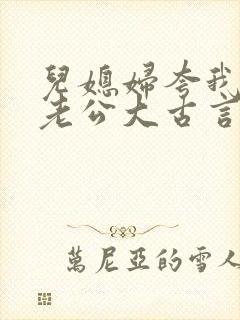 兒媳婦夸我
老公大古言
萬尼亞的雪人